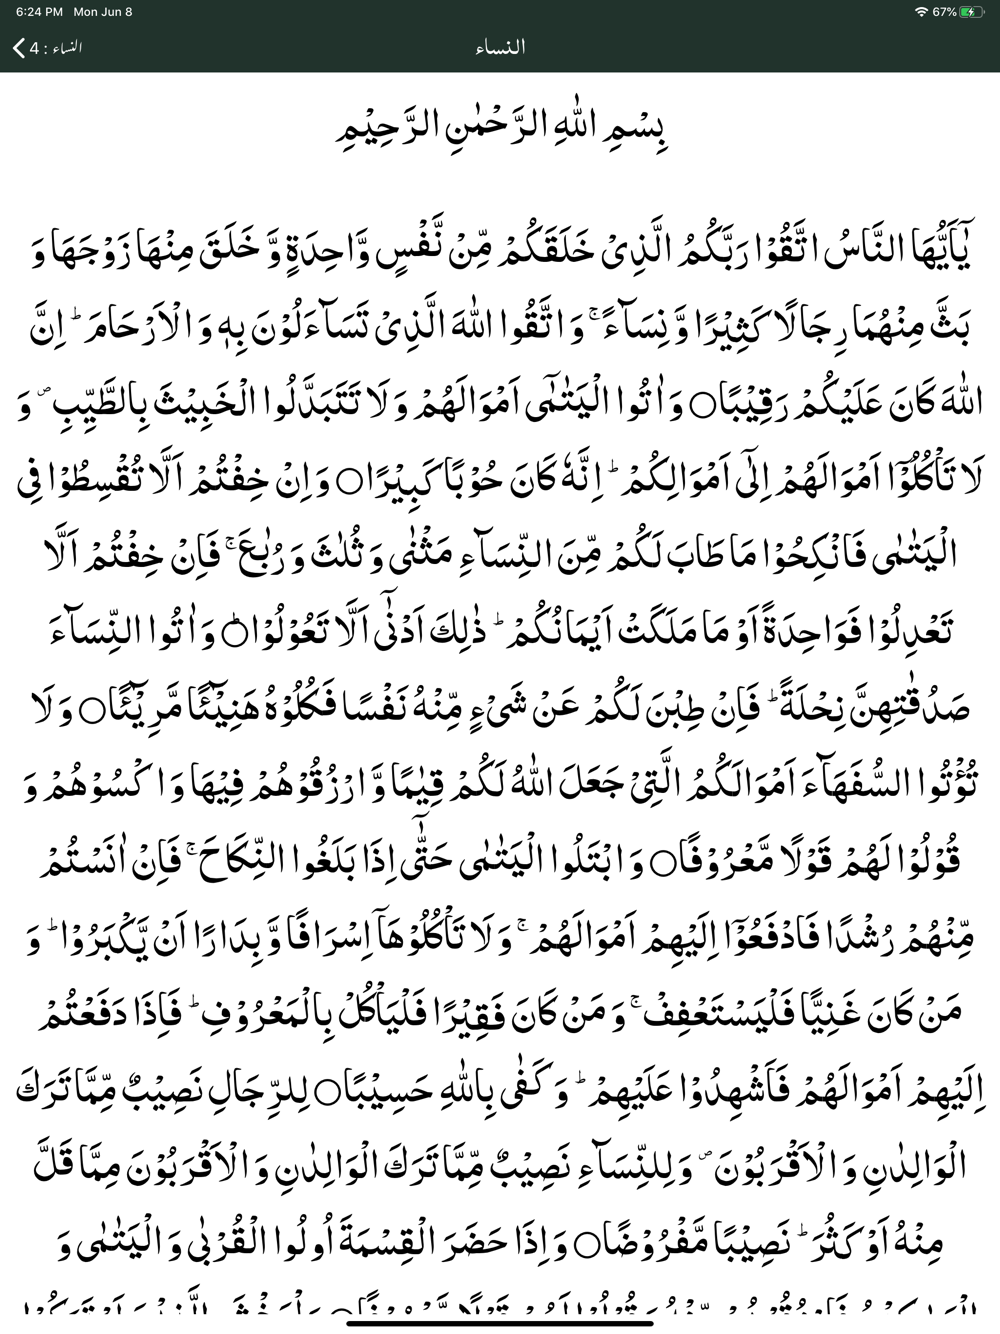 6:24 PM Mon Jun 8 67%
النساء : 4 النساء
بِسْمِ اللّٰهِ الرَّحْمٰنِ الرَّحِيْمِ
يٰٓاَيُّهَا النَّاسُ اتَّقُوْا رَبَّكُمُ الَّذِىْ خَلَقَكُمْ مِّنْ نَّفْسٍ وَّاحِدَةٍ وَّخَلَقَ مِنْهَا زَوْجَهَا وَ
بَثَّ مِنْهُمَا رِجَالًا كَثِيْرًا وَّنِسَآءً ۚ وَاتَّقُوا اللّٰهَ الَّذِىْ تَسَآءَلُوْنَ بِهٖ وَالْاَرْحَامَ ؕ اِنَّ
اللّٰهَ كَانَ عَلَيْكُمْ رَقِيْبًا○ وَاٰتُوا الْيَتٰمٰٓى اَمْوَالَهُمْ وَلَا تَتَبَدَّلُوا الْخَبِيْثَ بِالطَّيِّبِ ۖ وَ
لَا تَاْكُلُوْٓا اَمْوَالَهُمْ اِلٰٓى اَمْوَالِكُمْ ؕ اِنَّهٗ كَانَ حُوْبًا كَبِيْرًا○ وَاِنْ خِفْتُمْ اَلَّا تُقْسِطُوْا فِى
الْيَتٰمٰى فَانْكِحُوْا مَا طَابَ لَكُمْ مِّنَ النِّسَآءِ مَثْنٰى وَثُلٰثَ وَرُبٰعَ ۚ فَاِنْ خِفْتُمْ اَلَّا
تَعْدِلُوْا فَوَاحِدَةً اَوْ مَا مَلَكَتْ اَيْمَانُكُمْ ؕ ذٰلِكَ اَدْنٰٓى اَلَّا تَعُوْلُوْا○ؕ وَاٰتُوا النِّسَآءَ
صَدُقٰتِهِنَّ نِحْلَةً ؕ فَاِنْ طِبْنَ لَكُمْ عَنْ شَىْءٍ مِّنْهُ نَفْسًا فَكُلُوْهُ هَنِيْٓئًا مَّرِيْٓئًا○ وَلَا
تُؤْتُوا السُّفَهَآءَ اَمْوَالَكُمُ الَّتِىْ جَعَلَ اللّٰهُ لَكُمْ قِيٰمًا وَّارْزُقُوْهُمْ فِيْهَا وَاكْسُوْهُمْ وَ
قُوْلُوْا لَهُمْ قَوْلًا مَّعْرُوْفًا○ وَابْتَلُوا الْيَتٰمٰى حَتّٰٓى اِذَا بَلَغُوا النِّكَاحَ ۚ فَاِنْ اٰنَسْتُمْ
مِّنْهُمْ رُشْدًا فَادْفَعُوْٓا اِلَيْهِمْ اَمْوَالَهُمْ ۚ وَلَا تَاْكُلُوْهَآ اِسْرَافًا وَّبِدَارًا اَنْ يَّكْبَرُوْا ؕ وَ
مَنْ كَانَ غَنِيًّا فَلْيَسْتَعْفِفْ ۚ وَمَنْ كَانَ فَقِيْرًا فَلْيَاْكُلْ بِالْمَعْرُوْفِ ؕ فَاِذَا دَفَعْتُمْ
اِلَيْهِمْ اَمْوَالَهُمْ فَاَشْهِدُوْا عَلَيْهِمْ ؕ وَكَفٰى بِاللّٰهِ حَسِيْبًا○ لِلرِّجَالِ نَصِيْبٌ مِّمَّا تَرَكَ
الْوَالِدٰنِ وَالْاَقْرَبُوْنَ ۖ وَلِلنِّسَآءِ نَصِيْبٌ مِّمَّا تَرَكَ الْوَالِدٰنِ وَالْاَقْرَبُوْنَ مِمَّا قَلَّ
مِنْهُ اَوْ كَثُرَ ؕ نَصِيْبًا مَّفْرُوْضًا○ وَاِذَا حَضَرَ الْقِسْمَةَ اُولُوا الْقُرْبٰى وَالْيَتٰمٰى وَ